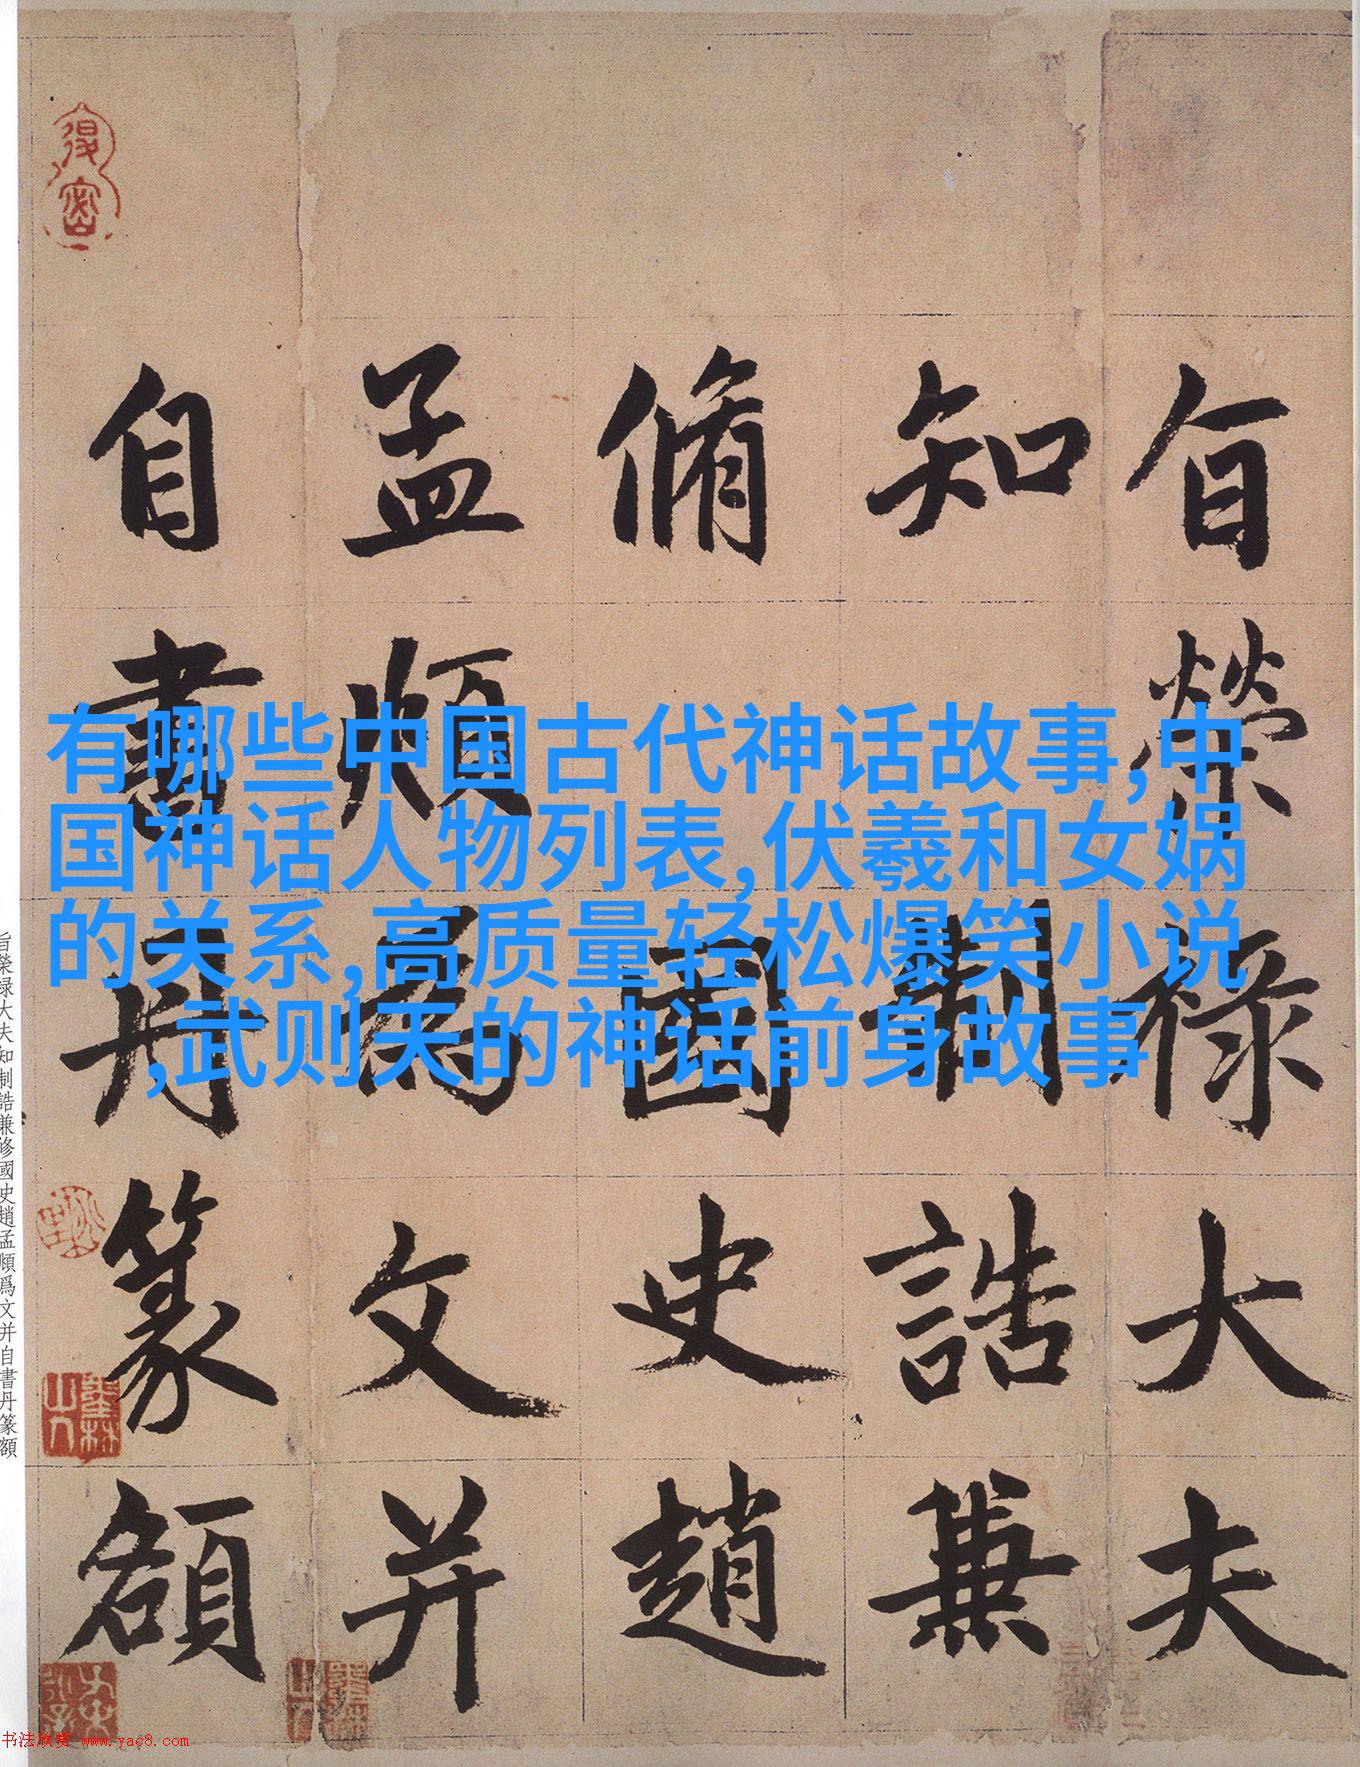 有哪些中国古代神话故事,中
国神话人物列表,伏羲和女娲
的关系,高质量轻松爆笑小说
,武则天的神话前身故事
旨榮祿大夫
知制誥兼
脩國史趙
孟頫為文并
自書丹篆額
旨榮禄大夫知制誥兼修國史趙孟頫爲文并自書丹篆額
书法欣赏 www.yac8.com